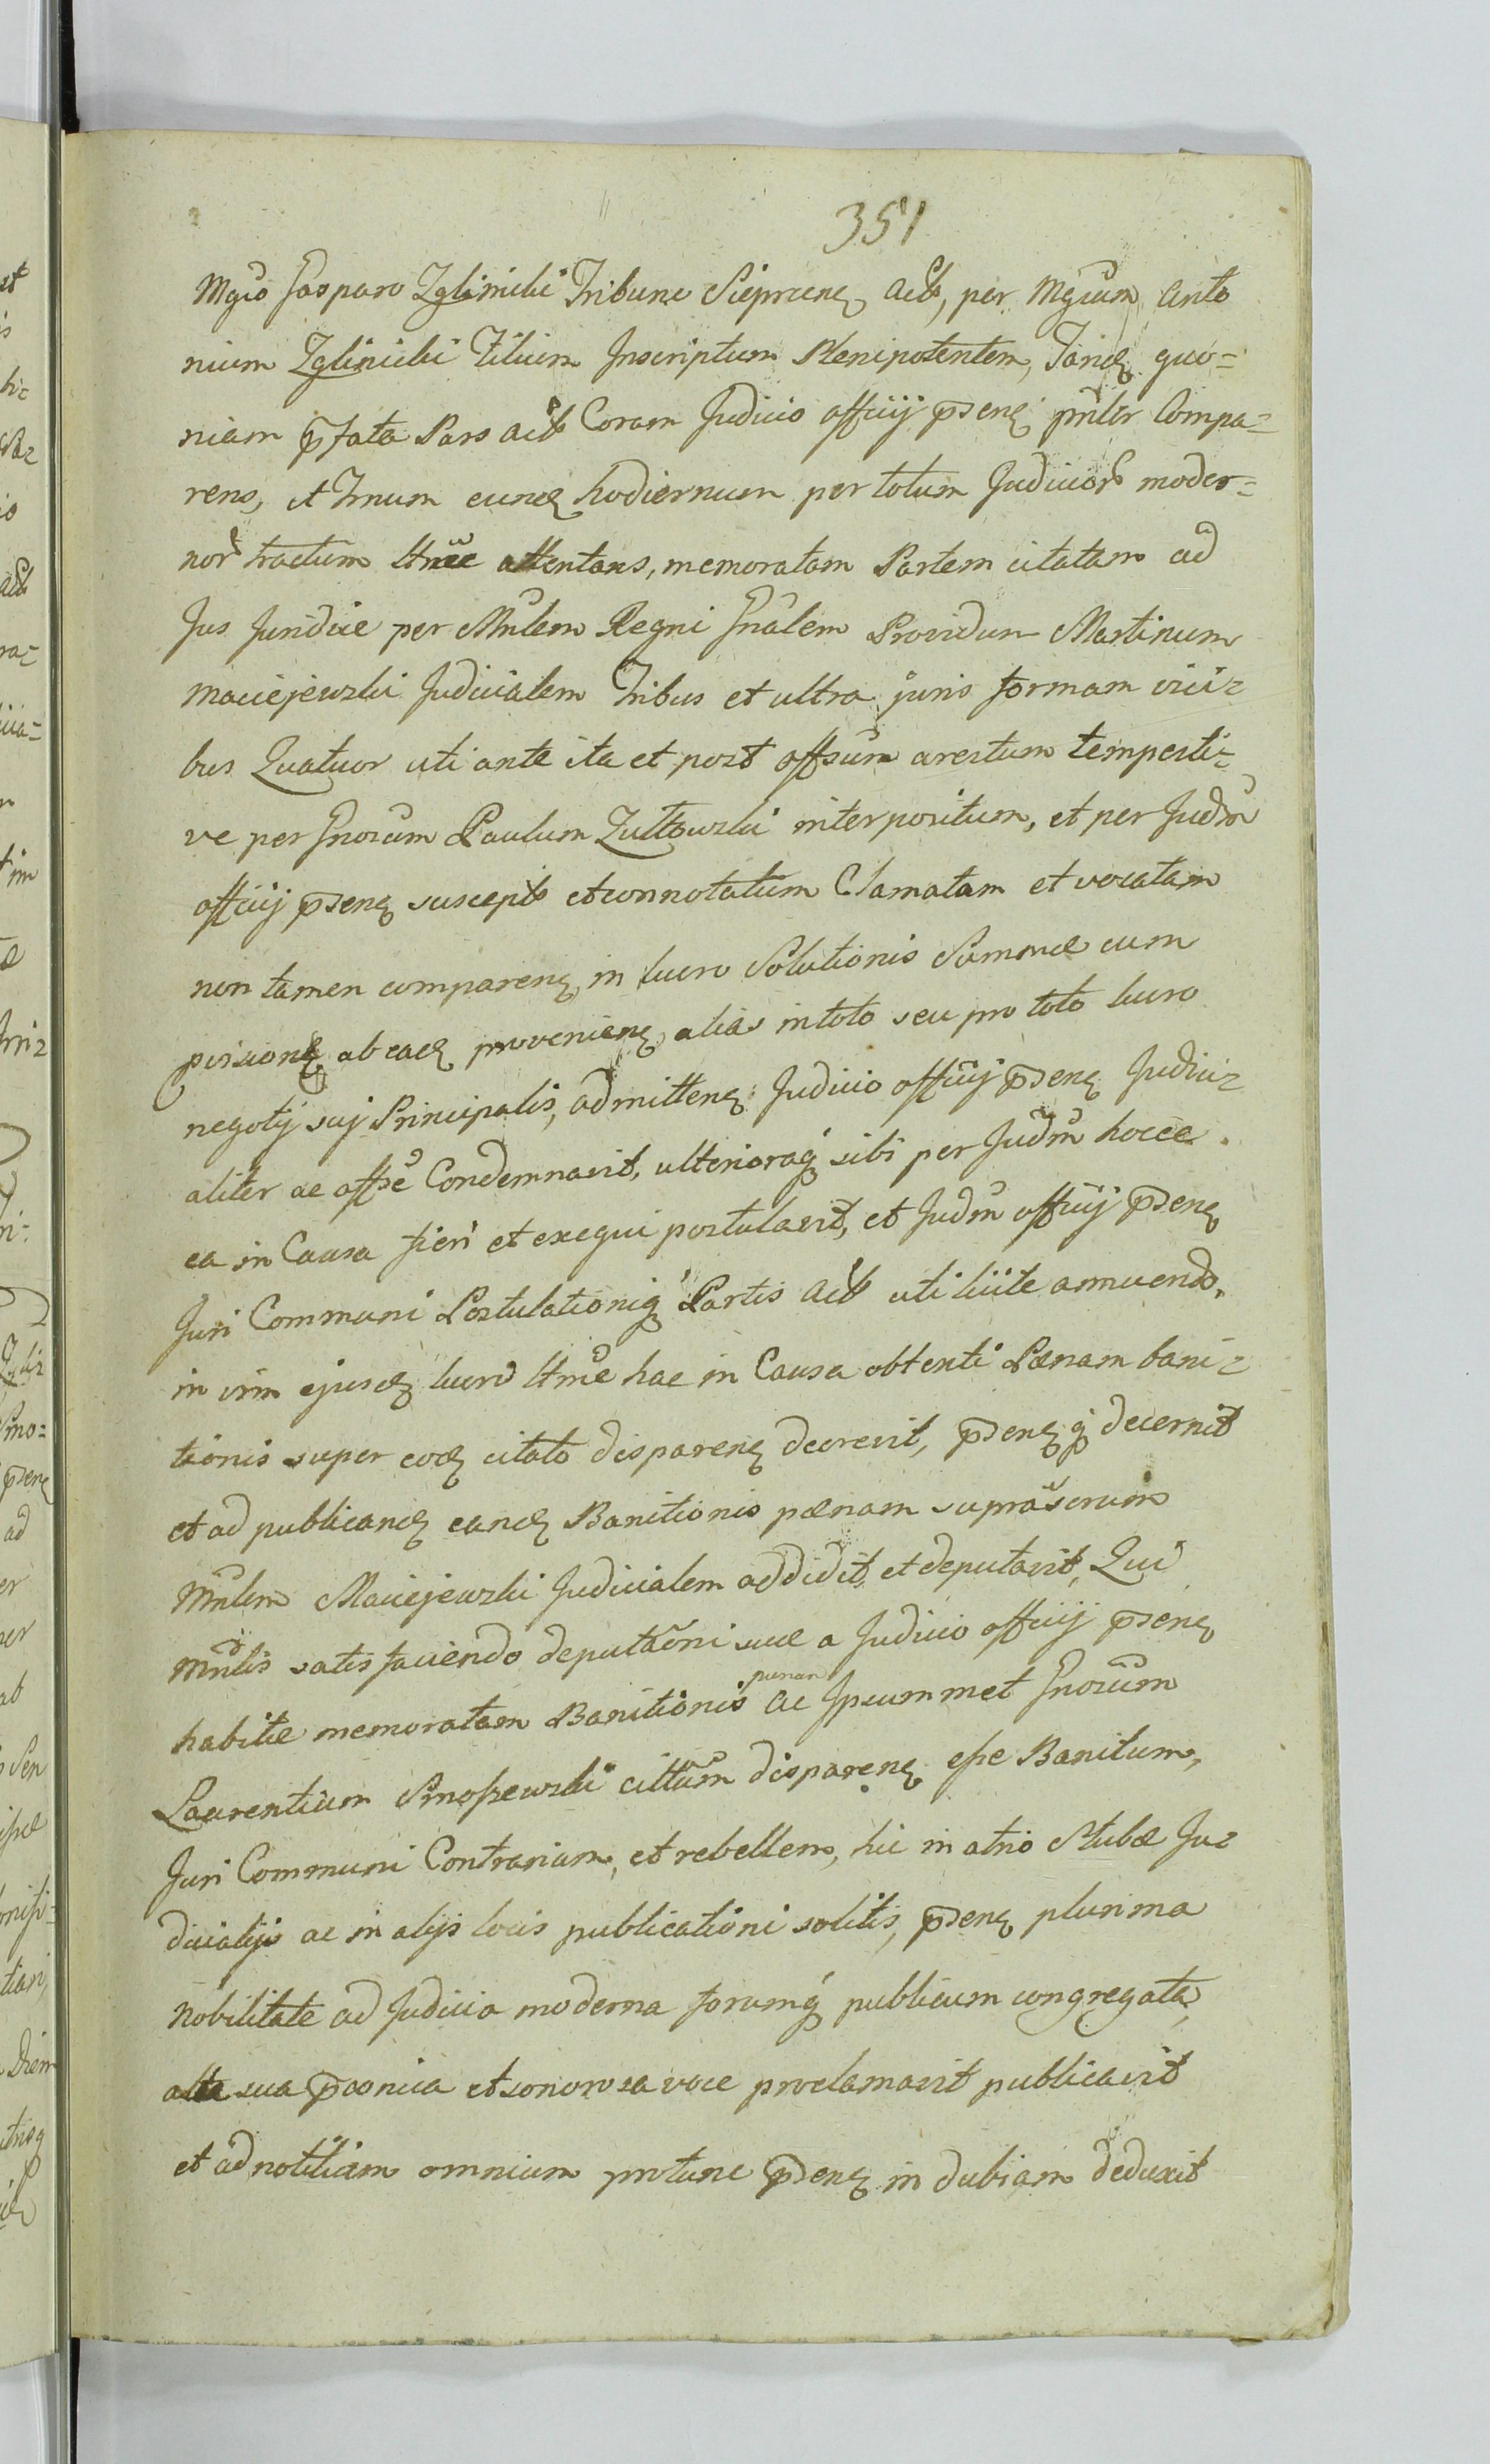 351
Mgco Gasparo Zglinicki Tribuno Sieprcen, Act, per Mgcum Anto
nium Zglinicki Filium Inscriptum Plenipotentem, Tand quo=
niam pfata Pars act Coram Judicio officij psen pnltr Compa=
rens, et Trnum eund hodiernum per totum Judicior moder=
nor tractum ltme attentans, memoratam Partem citatam ad
Jus Juridice per Mnlem Regni Gnalem Providum Martinum
Maciejewski Judicialem Tribus et ultra juris formam vici=
bus Quatuor uti ante ita et post offsum arestum tempesti=
ve per Gnosum Paulum Zułtowski interpositum, et per Judm
officij psen suscept et connotatum Clamatam et vocatam
non tamen comparen, in lucro Solutionis Summæ cum
pvision ab ead provenien, alias in toto seu pro toto lucro
negotij suj Principalis, admitten Judicio officij psen Judici=
aliter ac offse Condemnavit, ulterioraq sibi per Judm hocce
ea in Causa fieri et exequi postulavit, et Judm officij psen
Juri Communi Postulationiq Partis Act uti licite annuendo,
in vim ejusd lucri ltme hac in Causa obtenti Pænam bani=
tionis super eod citato disparen decrevit, psenq decernit
et ad publicand eand Banitionis pænam suprascrum
Mnlem Maciejewski Judicialem addidit et deputavit, Qui
Mnlis satisfaciendo deputaoni suæ a Judicio officij psen
habitæ memoratam Banitionis pænam ac Ipsummet Gnosum
Laurentium Smoszewski cittum disparen esse Banitum,
Juri Communi Contrarium, et rebellem, hic in atrio Stubæ Ju=
dicialijs ac in alijs locis publicationi solitis, psen plurima
Nobilitate ad Judicia moderna forumq publicum congregata,
alta sua præonica et sonorosa voce proclamavit publicavit
et ad notitiam omnium protunc psen in dubiam deduxit